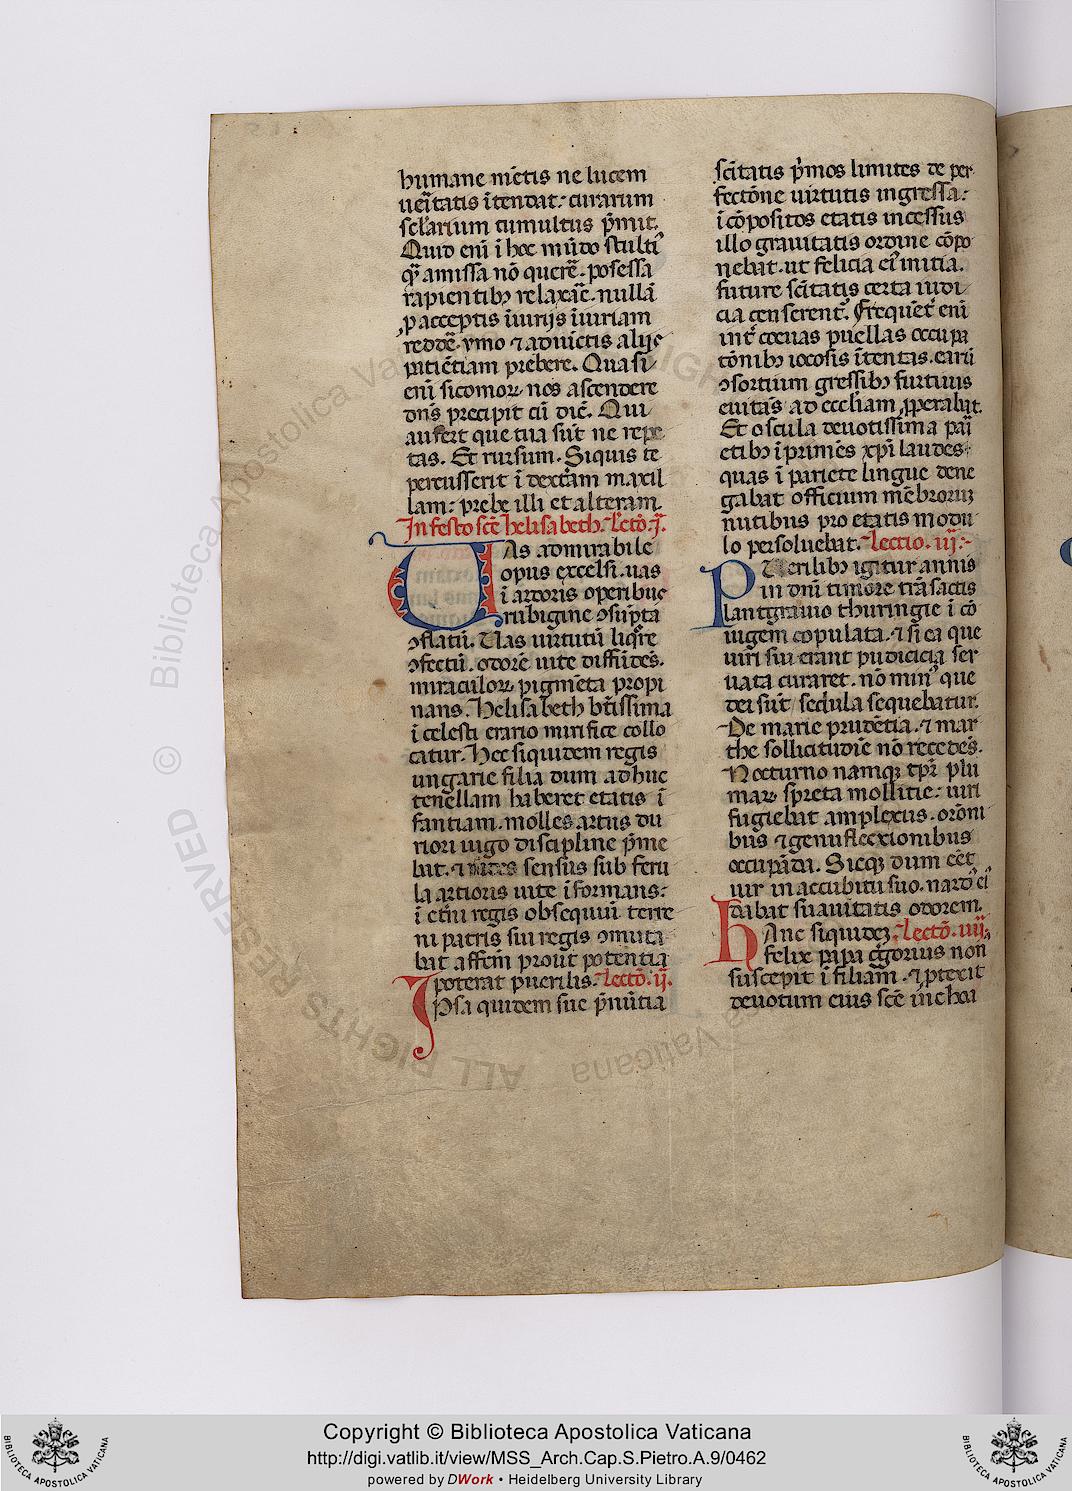 humane mētis ne lucem
ueritatis ītendat: curarum
scl'arium tumultus p̄mit.
Quid eni ī hoc mūdo stulti᷒
qᷓ amissa nō querē. posessa
rapientibꝫ relaxāe. nullā
ꝓ acceptis īiurijs īiuriam
reddē. ymo ⁊ aduictis aliis
patiētiam prebere. Quasi
eni sicomoꝝ nos ascendere
dn̄s precipit cū dic̄. Qui
aufert que tua sūt ne repe
tas. Et rursum. Siquis te
percusserit ī dextām maxil
lam: prebe illi et alteram.
In festo scē helisabeth. Lectō. j.
UAs admirabile
opus excelsi. uas
ī ardoris operibus
rubigine ꝯsūpta
ꝯflatū. Uas uirtutū liq̄re
ꝯfectū. odorē uite diffūdēs.
miraculoꝝ pigmēta propi
nans. Helisabeth btīssima
ī celesti erario mirifice collo
catur. Hec siquidem regis
ungarie filia dum adhuc
tenellam haberet etatis ī
fantiam. molles artus du
riori iugo discipline p̄me
bat. ⁊ rudes sensus sub feru
la artioris uite īformans:
ī et̄ni regis obsequiū terre
ni patris sui regis ꝯmuta
bat affcm̄ prout potentia
poterat puerilis. Lectō. ij.
IPsa quidem sue p̄nūtia
scītatis p̄mos limites de per
fectōne uirtutis ingressa:
īcōpositos etatis incessus
illo grauitatis ordine cōpo
nebat. ut felicia ei᷒ initia.
future scītatis certa iudi
cia censerent᷒. Frequēt᷒ eni
int᷒ coeuas puellas occupa
tōnibꝫ iocosis ītentas. earū
ꝯsortium gressibꝫ furtiuis
euitās ad eccl'iam ꝓperabat.
Et oscula deuotissima pari
etibꝫ īprimēs xp̄i laudes
quas ī pariete lingue dene
gabat officium mēbrorum
nutibus pro etatis modu
lo persoluebat. Lectio. iij.
PUerilibꝫ igitur annis
in dn̄i timore trāsactis
lantgrauio thuringie ī cō
iugem copulata. ⁊ si ea que
uiri sui erant pudicicia ser
uata curaret. nō min᷒ que
dei sūt sedula sequebatur.
De marie prudētia. ⁊ mar
the sollicitudīe nō recedēs.
Nocturno namqꝫ tp̄r plu
maꝝ spreta mollitie: uiri
fugiebat amplexus. orōni
bus ⁊ genuflecxionibus
occupāda. Sicqꝫ dum eēt
uir in accubitu suo. nard᷒ ei᷒
dabat suauitatis odorem.
HAnc siquidez Lectō. iiij.
felix papa g̅gorius non
suscepit ī filiam. ⁊ ꝓtexit
deuotum eius scē īchoa
Copyright © Biblioteca Apostolica Vaticana
http://digi.vatlib.it/view/MSS_Arch.Cap.S.Pietro.A.9/0462
powered by DWork • Heidelberg University Library
BIBLIOTECA APOSTOLICA VATICANA
BIBLIOTECA APOSTOLICA VATICANA
© Biblioteca Apostolica Vaticana
ALL RIGHTS RESERVED